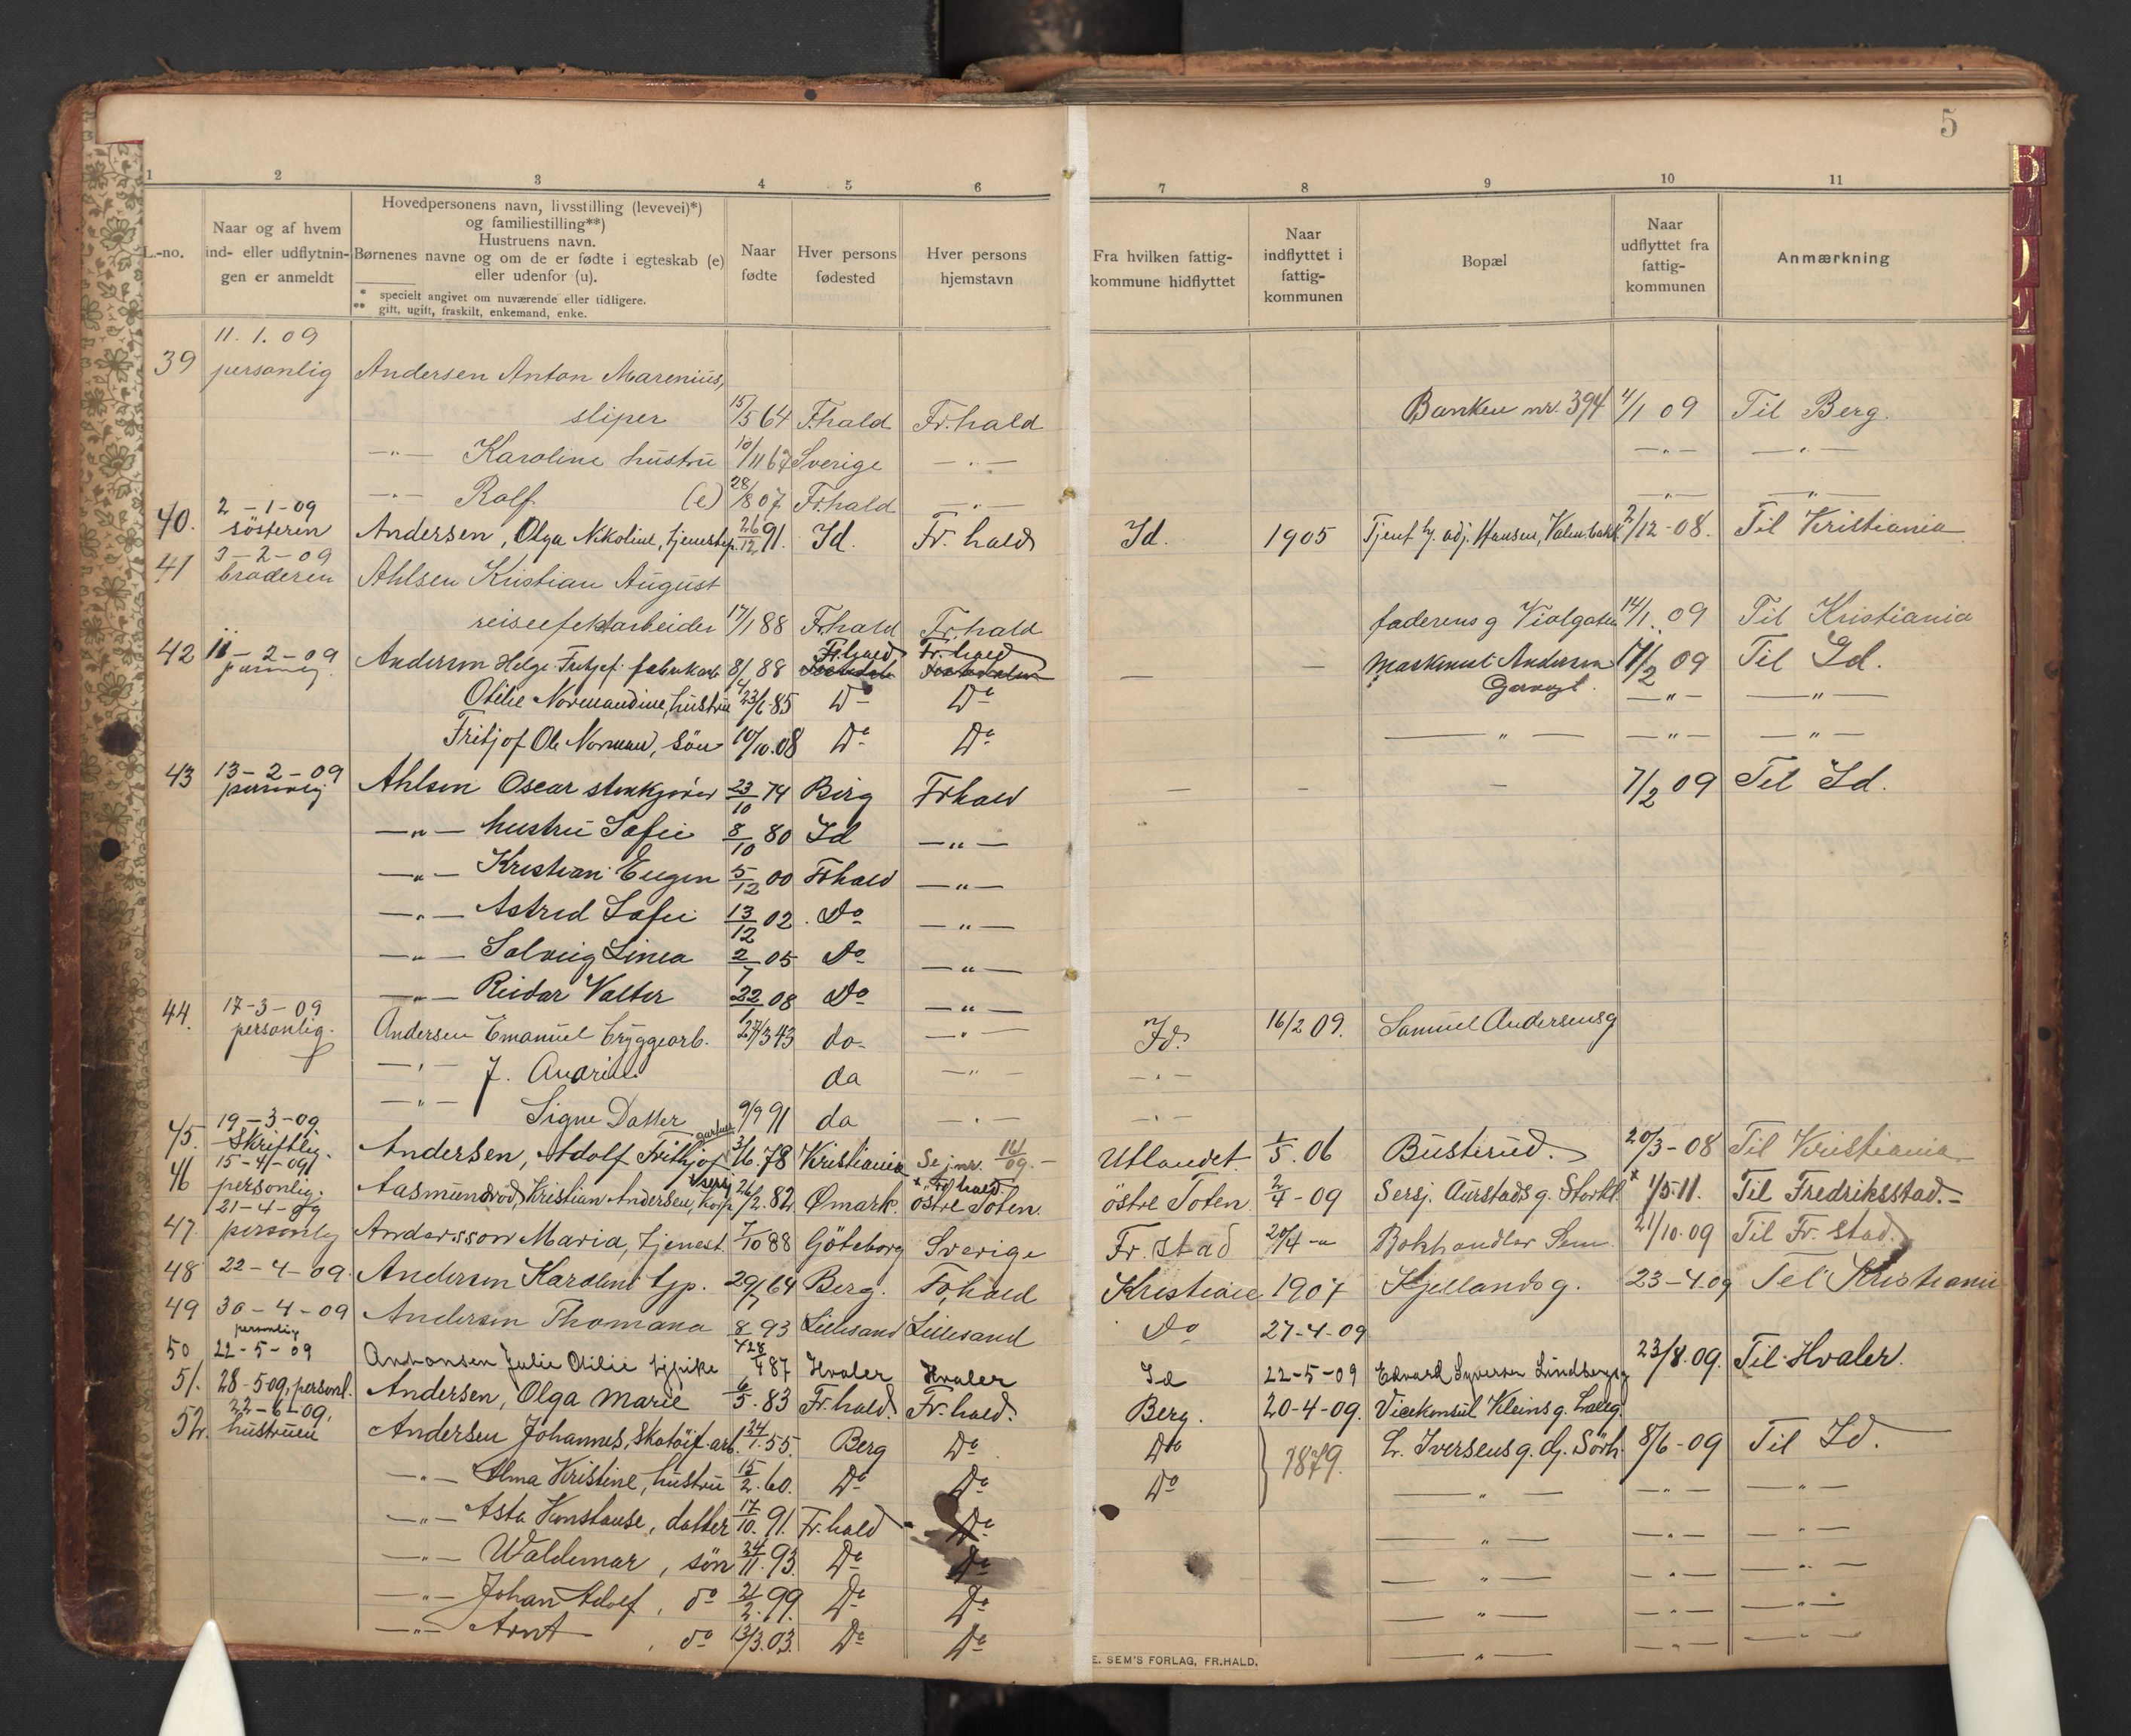 5
1 2 3 4 5 6 7 8 9 10 11
L.-no.
Naar og af hvem
ind- eller udflytnin-
gen er anmeldt
Hovedpersonens navn, livsstilling (levevei)*)
og familiestilling**)
Hustruens navn.
Børnenes navne og om de er fødte i egteskab (e)
eller udenfor (u).
* specielt angivet om nuværende eller tidligere.
** gift, ugift, fraskilt, enkemand, enke.
Naar
fødte
Hver persons
fødested
Hver persons
hjemstavn
Fra hvilken fattig-
kommune hidflyttet
Naar
indflyttet i
fattig-
kommunen
Bopæl
Naar
udflyttet fra
fattig-
kommunen
Anmærkning
11. 1. 09
39 personlig Andersen Anton Marenius,
sliper 15/5 64 Fhald Fr.hald Banken nr. 394 4/1 09 Til Berg.
—"— Karoline hustru 10/11 67 Sverige —"— —"— —"—
—"— Rolf (e) 28/8 07 Fr.hald —"— —"— —"—
2-1-09
40. søsteren Andersen, Olga Nikoline, tjenestep. 26/12 91. Id. Fr. hald Id. 1905 Tjent hj. adj. Hansen, 2/12-08. Til Kristiania
3-2-09
41 broderen Ahlsen Kristian August
reiseefektarbeider 17/1 88 Fr.hald Fr.hald faderens g Violgaten 14/1 09 Til Kristiania
Fr.hald Fr.hald
42 11-2-09 Andersen Helge Fritjof fabrikarb 8/4 88 — — Maskinist Andersen 17/2 09 Til Id.
Otilie Normandine, hustru 23/6 85 Do Do —"— —"—
Fritjof Ole Norman, søn 10/10.08 Do Do —"— —"— —"—
13-2-09
43 personlig Ahlsen Oscar stenkjører 23/10 74 Berg Frhald — — — 7/2 09 Til Id.
—"— hustru Sofie 8/10 80 Id —"—
—"— Kristian Eugen 5/12 00 Frhald —"—
—"— Astrid Sofie 13/12 02. Do —"—
—"— Solveig Linea 2/7 05 Do —"—
—"— Reidar Valter 22/1 08 Do —"—
17-3-09
44. personlig. Andersen Emanuel bryggearb. 27/3 43 do. —"— Id. 16/2 09. Samuel Andersensg
—"— J. Andrine do —"— —"—
—"— Signe Datter 9/9 91 do —"— —"—
19-3-09.
45. Skriftlig. Andersen, Adolf Frithjof 3/6.78 Kristiania Se jnr. 16/09.- Utlandet. 1/5.06 Busterud. 20/3-08 Til Kristiania
15-4-09
46 personlig. Aasmundrød, Kristian Andersen, 26/2.82. Ømark. østre Toten. østre Toten. 2/4-09 Sersj. Aurstads g. 1/5.11. Til Fredriksstad.-
21-4-09
47. personlig Andersson Maria, tjenest. 7/10 88 Göteborg Sverige Fr. stad 20/4 -"- Bokhandler Sem 21/10.09 Til Fr. stad.
48 22-4-09. Andersen Karoline tjp. 29/7 64 Berg. Fr,hald Kristian 1907 Kjellandsg. 23-4.09 Til Kristiania
49 30-4-09 Andersen Thomana 8/4 93 Lillesand Lillesand Do 27-4-09
personlig
50 22-5-09 Antonsen Julie Otilie tjpike 28/4 87 Hvaler Hvaler Id 22-5-09 Edvard Syversen Lindbergsg 23/8.09. Til Hvaler.
51. 28-5-09, personl. Andersen, Olga Marie 6/5.83 Fr.hald. Fr.hald. Berg. 20-4-09. Vicekonsul Kleins g.
22-6-09,
52. hustruen Andersen Johannes, Skotøif.arb. 24/1.55. Berg Do Do 1879. L. Iversens g. 8/6-09 Til Id.
—"— Alma Kristine, hustru 15/2.60. Do Do Do —"— —"— —"—
—"— Asta Konstanse, datter 17/10.91. Fr.hald Do —"— —"— —"—
—"— Waldemar, søn 24/11.93. Do Do —"— —"— —"—
—"— Johan Adolf, do 21/2.99. Do Do —"— —"— —"—
—"— Arnt, do 13/3.03. Do Do —"— —"— —"—
E. SEM'S FORLAG, FR.HALD.